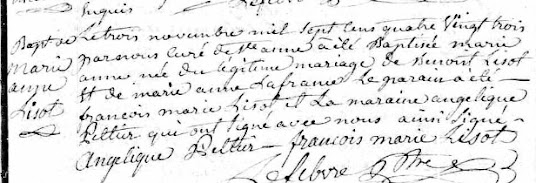 Bapt de
Marie
anne
Lisot
Le trois novembre mil Sept Cens quatre Vingt trois
par nous Curé de Ste anne a été Baptisée marie
anne née du légitime mariage de Benoit Lisot
Et de marie anne Lafrance Le parain a été
francois marie Lisot et La maraine angelique
Peltier qui ont signé avec nous ainsi Signé
Angelique Peltier francois marie Lisot
Lefebvre ptre